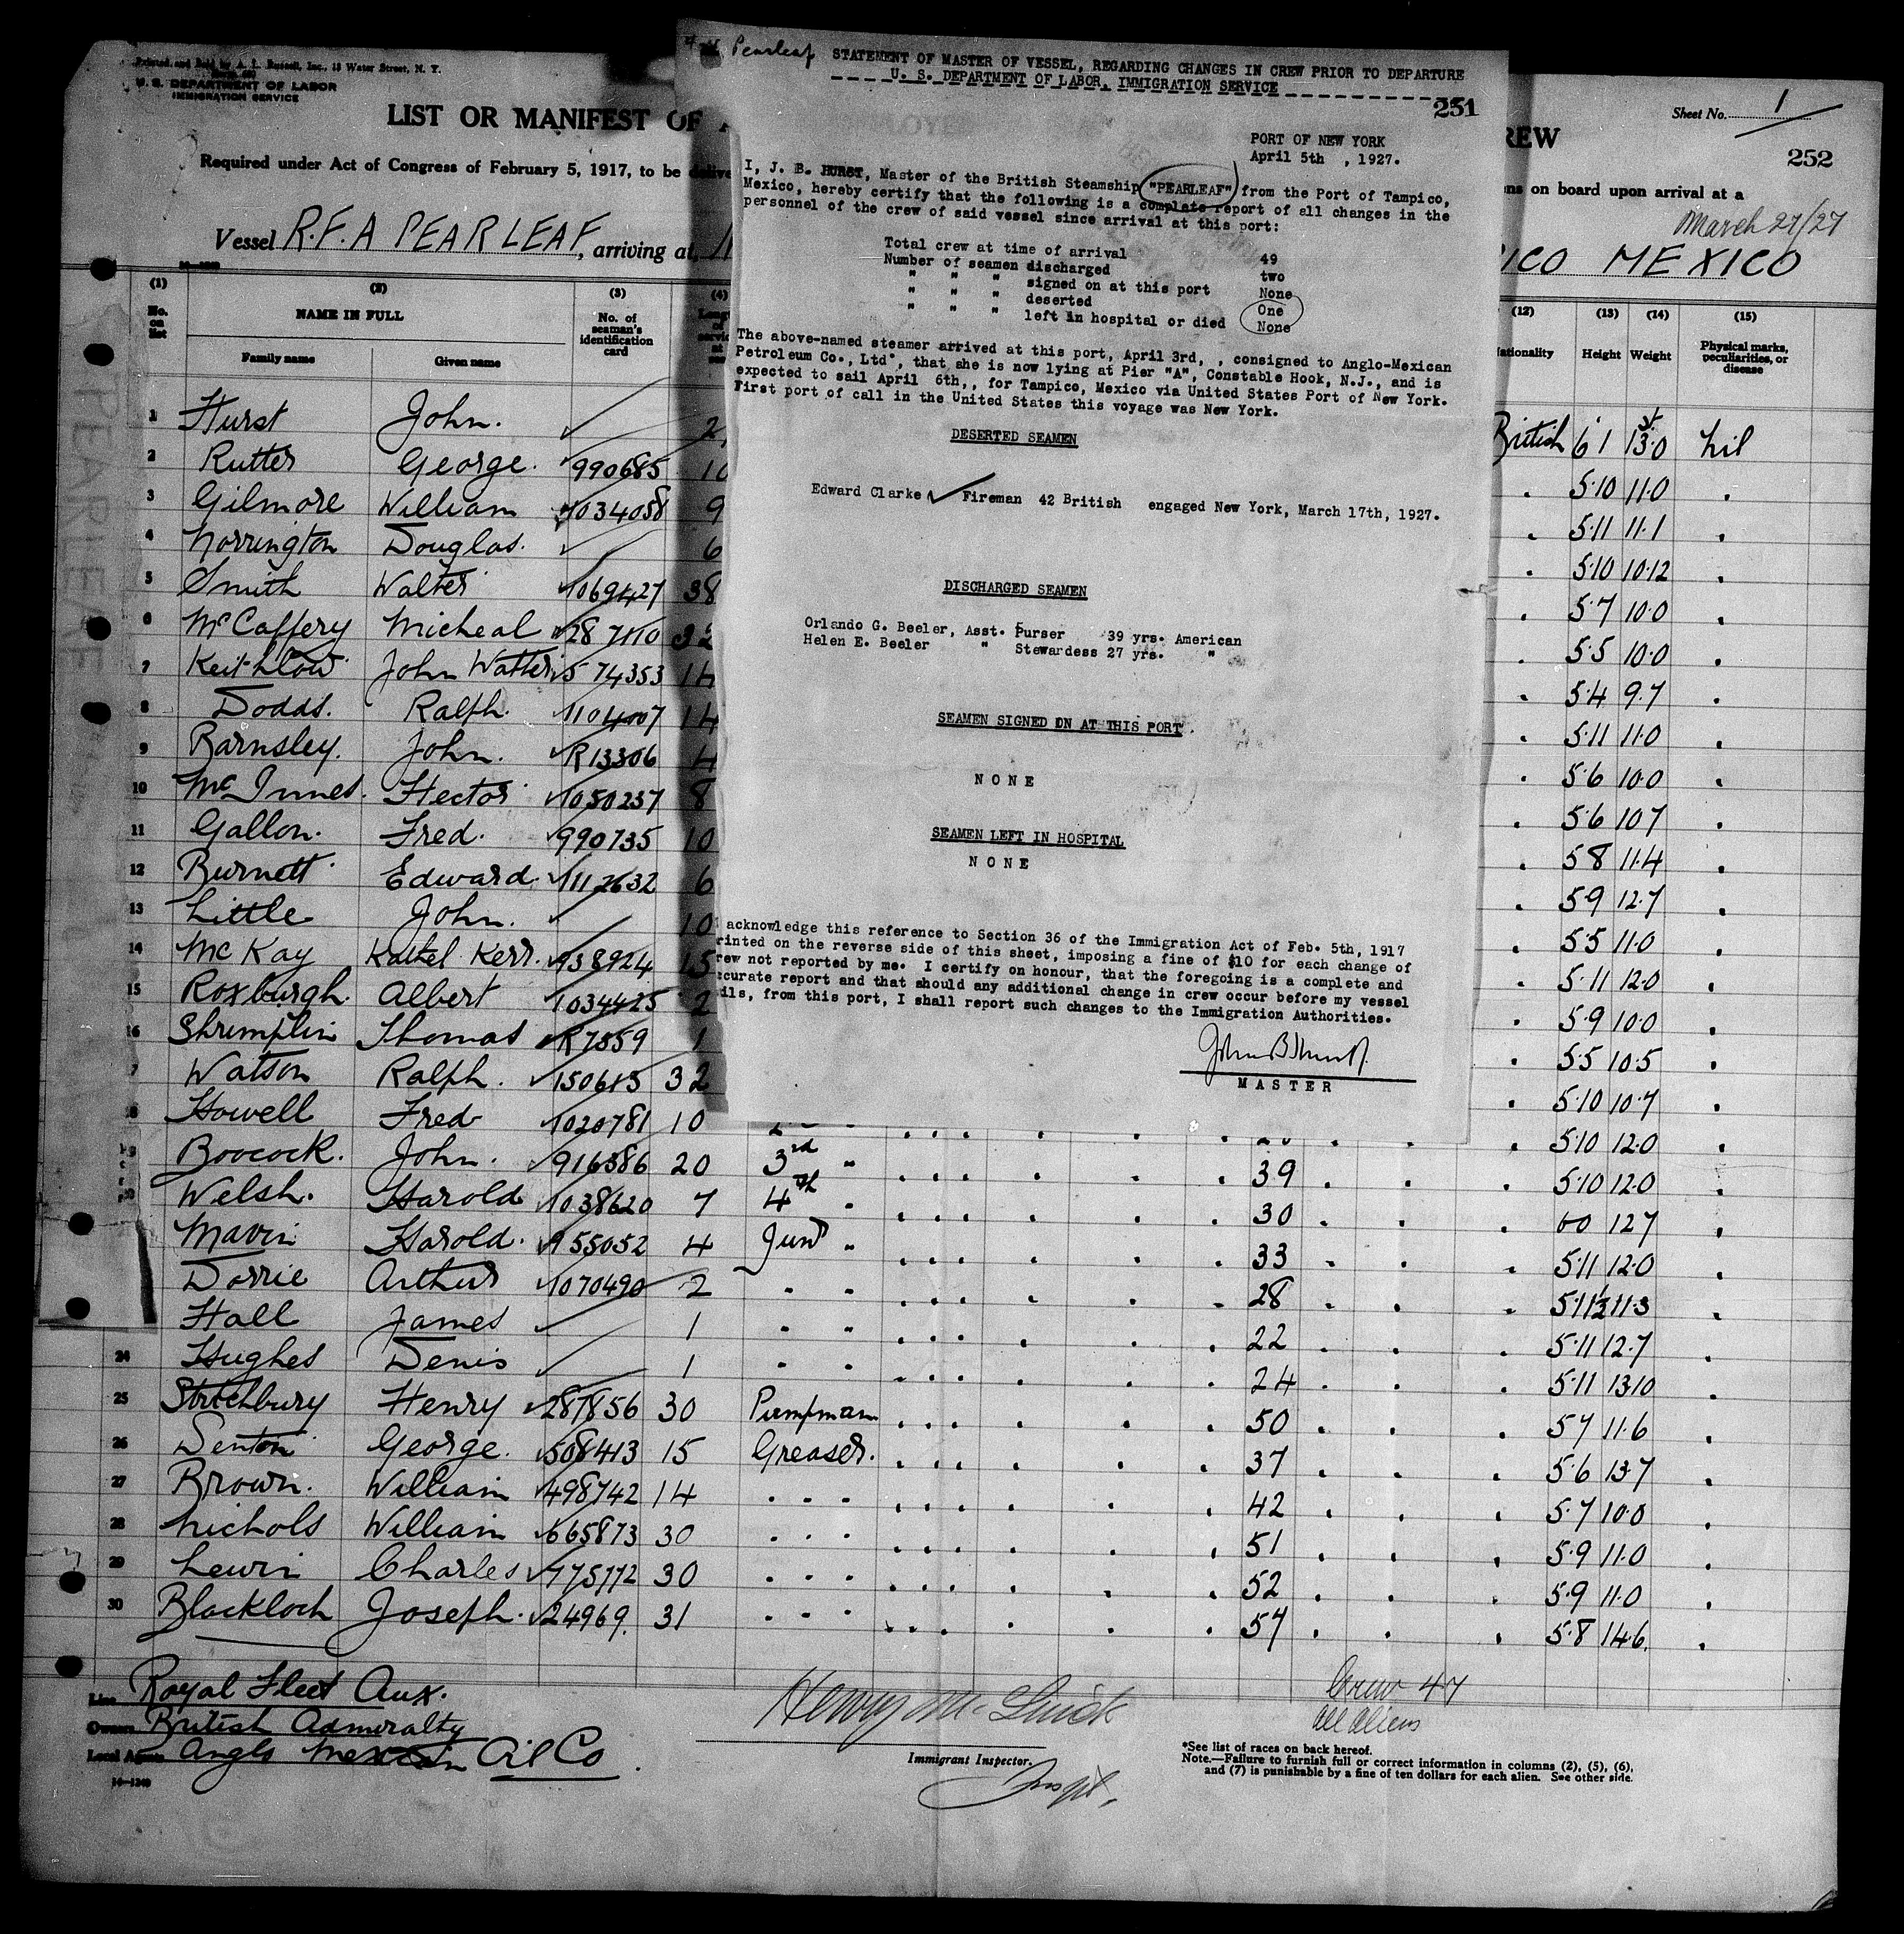 Printed and Sold by A. L. Russell, Inc., 15 Water Street, N. Y.
U. S. DEPARTMENT OF LABOR
IMMIGRATION SERVICE
LIST OR MANIFEST OF
Required under Act of Congress of February 5, 1917, to be
Vessel R.F.A PEARLEAF, arriving at
PEARLEAF
(1) (2) (3) (4)
No. on list
NAME IN FULL
Family name Given name
No. of seaman's identification card
1 Hurst John. 2
2 Rutter George. 990685 10
3 Gilmore William 1034058 9
4 Norrington Douglas. 6
5 Smith Walter 1069427 38
6 McCaffery Micheal 287110 32
7 Keithlow John Watter 574353 14
8 Dodds. Ralph. 1104007 14
9 Barnsley. John. R13306 4
10 McInnes. Hector 1050237 8
11 Gallon. Fred. 990735 10
12 Burnett Edward. 1112632 6
13 Little John. 10
14 McKay Kerr. 938924 15
15 Roxburgh. Albert 1034425 2
16 Shrimplin Thomas R7559 1
7 Watson Ralph. 150613 32
18 Howell Fred 1020781 10
19 Boocock. John. 916386 20 3rd " 39
Welsh. Harold 1038620 7 4th " 30
Mavin Harold. 955052 4 Junr " 33
Dorrie Arthur 1070490 2 " " 28
Hall James 1 " " 22
24 Hughes Denis 1 " " 24
25 Stritchbury Henry 287856 30 Pumpman 50
26 Denton George. 508413 15 Greaser. 37
27 Brown. William 498742 14 42
28 Nichols William 665873 30 51
29 Lewin Charles 775772 30 52
30 Blackloch Joseph. 24969. 31 57
Line Royal Fleet Aux.
Owners British Admiralty
Local Agents Anglo Mexican Oil Co.
14-1240
Immigrant Inspector.
Crew 47
all aliens
*See list of races on back hereof.
Note.—Failure to furnish full or correct information in columns (2), (5), (6),
and (7) is punishable by a fine of ten dollars for each alien. See other side.
Pearleaf
STATEMENT OF MASTER OF VESSEL, REGARDING CHANGES IN CREW PRIOR TO DEPARTURE
U. S. DEPARTMENT OF LABOR, IMMIGRATION SERVICE
251
PORT OF NEW YORK
April 5th , 1927.
I, J. B. HURST, Master of the British Steamship "PEARLEAF" from the Port of Tampico,
Mexico, hereby certify that the following is a complate report of all changes in the
personnel of the crew of said vessel since arrival at this port:
Total crew at time of arrival 49
Number of seamen discharged two
" " " signed on at this port None
" " " deserted One
" " " left in hospital or died None
The above-named steamer arrived at this port, April 3rd, , consigned to Anglo-Mexican
Petroleum Co., Ltd., that she is now lying at Pier "A", Constable Hook, N.J., and is
expected to sail April 6th,, for Tampico, Mexico via United States Port of New York.
First port of call in the United States this voyage was New York.
DESERTED SEAMEN
Edward Clarke Fireman 42 British engaged New York, March 17th, 1927.
DISCHARGED SEAMEN
Orlando G. Beeler, Asst. Purser 39 yrs. American
Helen E. Beeler " Stewardess 27 yrs. "
SEAMEN SIGNED ON AT THIS PORT.
N O N E
SEAMEN LEFT IN HOSPITAL
N O N E
acknowledge this reference to Section 36 of the Immigration Act of Feb. 5th, 1917
rinted on the reverse side of this sheet, imposing a fine of $10 for each change of
rew not reported by me. I certify on honour, that the foregoing is a complete and
curate report and that should any additional change in crew occur before my vessel
ils, from this port, I shall report such changes to the Immigration Authorities.
John B Hurst.
M A S T E R
Sheet No. 1
REW
252
ns on board upon arrival at a
March 27/27
ICO MEXICO
(12) (13) (14) (15)
ationality Height Weight Physical marks, peculiarities, or disease
British 6 1 13.0 nil
5.10 11.0
5.11 11.1
5.10 10.12
5.7 10.0
5.5 10.0
5.4 9.7
5.11 11.0
5.6 10.0
5.6 10.7
5 8 11.4
5.9 12.7
5.5 11.0
5.11 12.0
5.9 10.0
5.5 10.5
5.10 10.7
5.10 12.0
5.10 12.0
6 0 12 7
5.11 12.0
5.11½ 11.3
5.11 12.7
5.11 13 10
5 7 11.6
5.6 13.7
5.7 10.0
5.9 11.0
5.9 11.0
5.8 14.6.